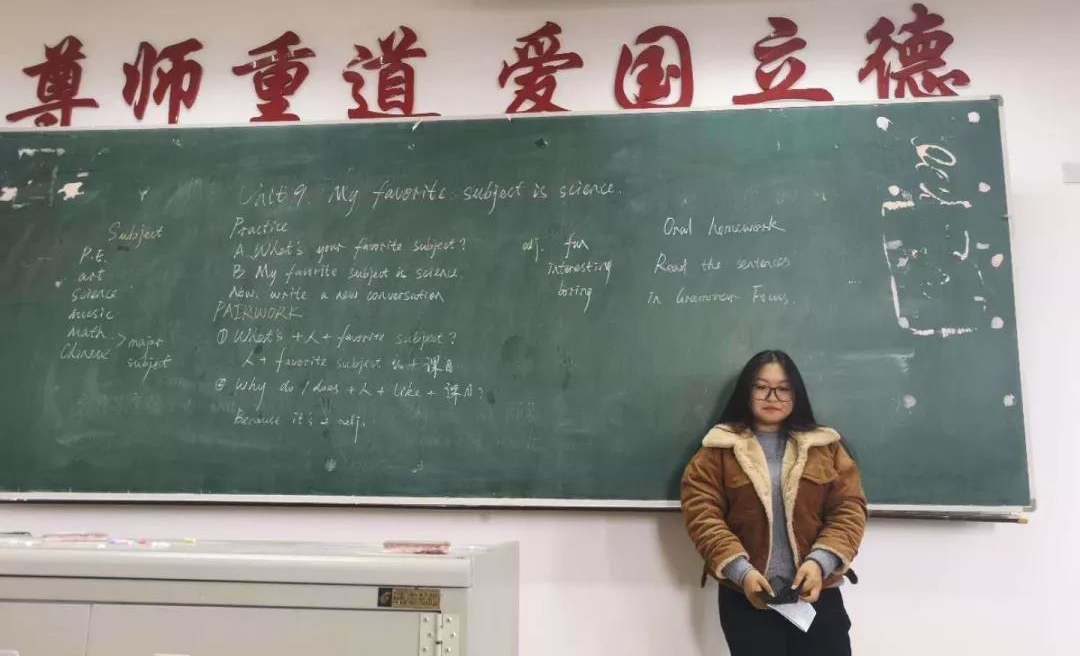 尊师重道 爱国立德
Unit 9 My favorite subject is science.
Subject
P.E.
art
science
music
math
Chinese
> major
subject
Practice
A. What's your favorite subject?
B: My favorite subject is science.
Now, write a new conversation
PAIRWORK
① What's + 人 + favorite subject?
人 + favorite subject is + 课目
② Why do / does + 人 + like + 课目?
Because it's + adj.
adj. fun
interesting
boring
Oral homework
Read the sentences
in Grammar Focus.